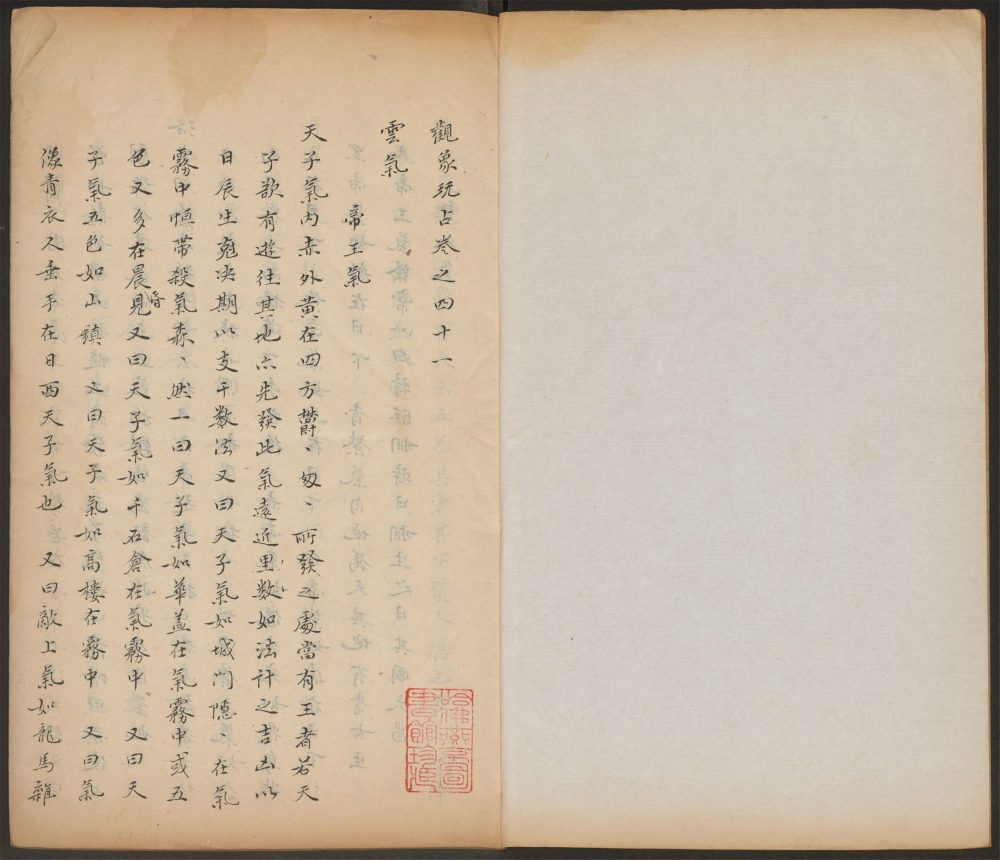 觀象玩占卷之四十一
雲氣
帝王氣
天子氣內赤外黃在四方欝〻匆〻所發之處當有王者若天
子欲有遊往其地亦先發此氣遠近里数如法計之吉凶以
日辰生尅决期以支干数法又曰天子氣如城門隱〻在氣
霧中恒帶殺氣森〻然一曰天子氣如華盖在氣霧中或五
色又多在晨昏見又曰天子氣如千石倉在氣霧中又曰天
子氣五色如山鎮又曰天子氣如高樓在霧中又曰氣
像青衣人垂手在日西天子氣也又曰敵上氣如龍馬雜
哈佛燕京圖
書館珍藏